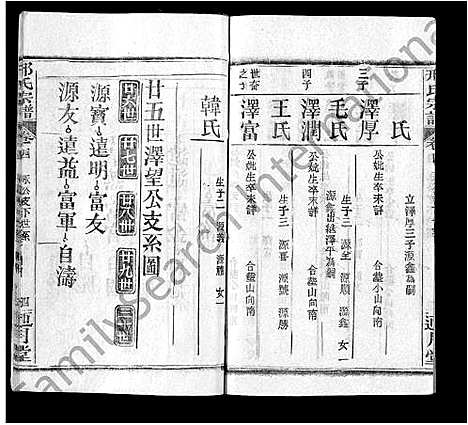 氏
立澤厚三子源鑫為嗣
三子
澤厚
公妣生卒未詳
合塟小山向南
毛氏
生子三 源全 源鑫 源勝
源鑫出継澤平為嗣
四子
澤潤
公妣生卒未詳
合塟山向南
王氏
生子三 源喜 源號 源勝
世奇之子
澤富
公妣生卒未詳
合塟山向南
韓氏
生子二 源義 源勝 女一
廿五世澤望公支系圖
廿六世 廿七世 廿八世 廿九世 三十世
源寳 遠明 富友
源友 遠益 富軍 自濤
邢氏宗譜
卷四
四
通月堂
FamilySearch International